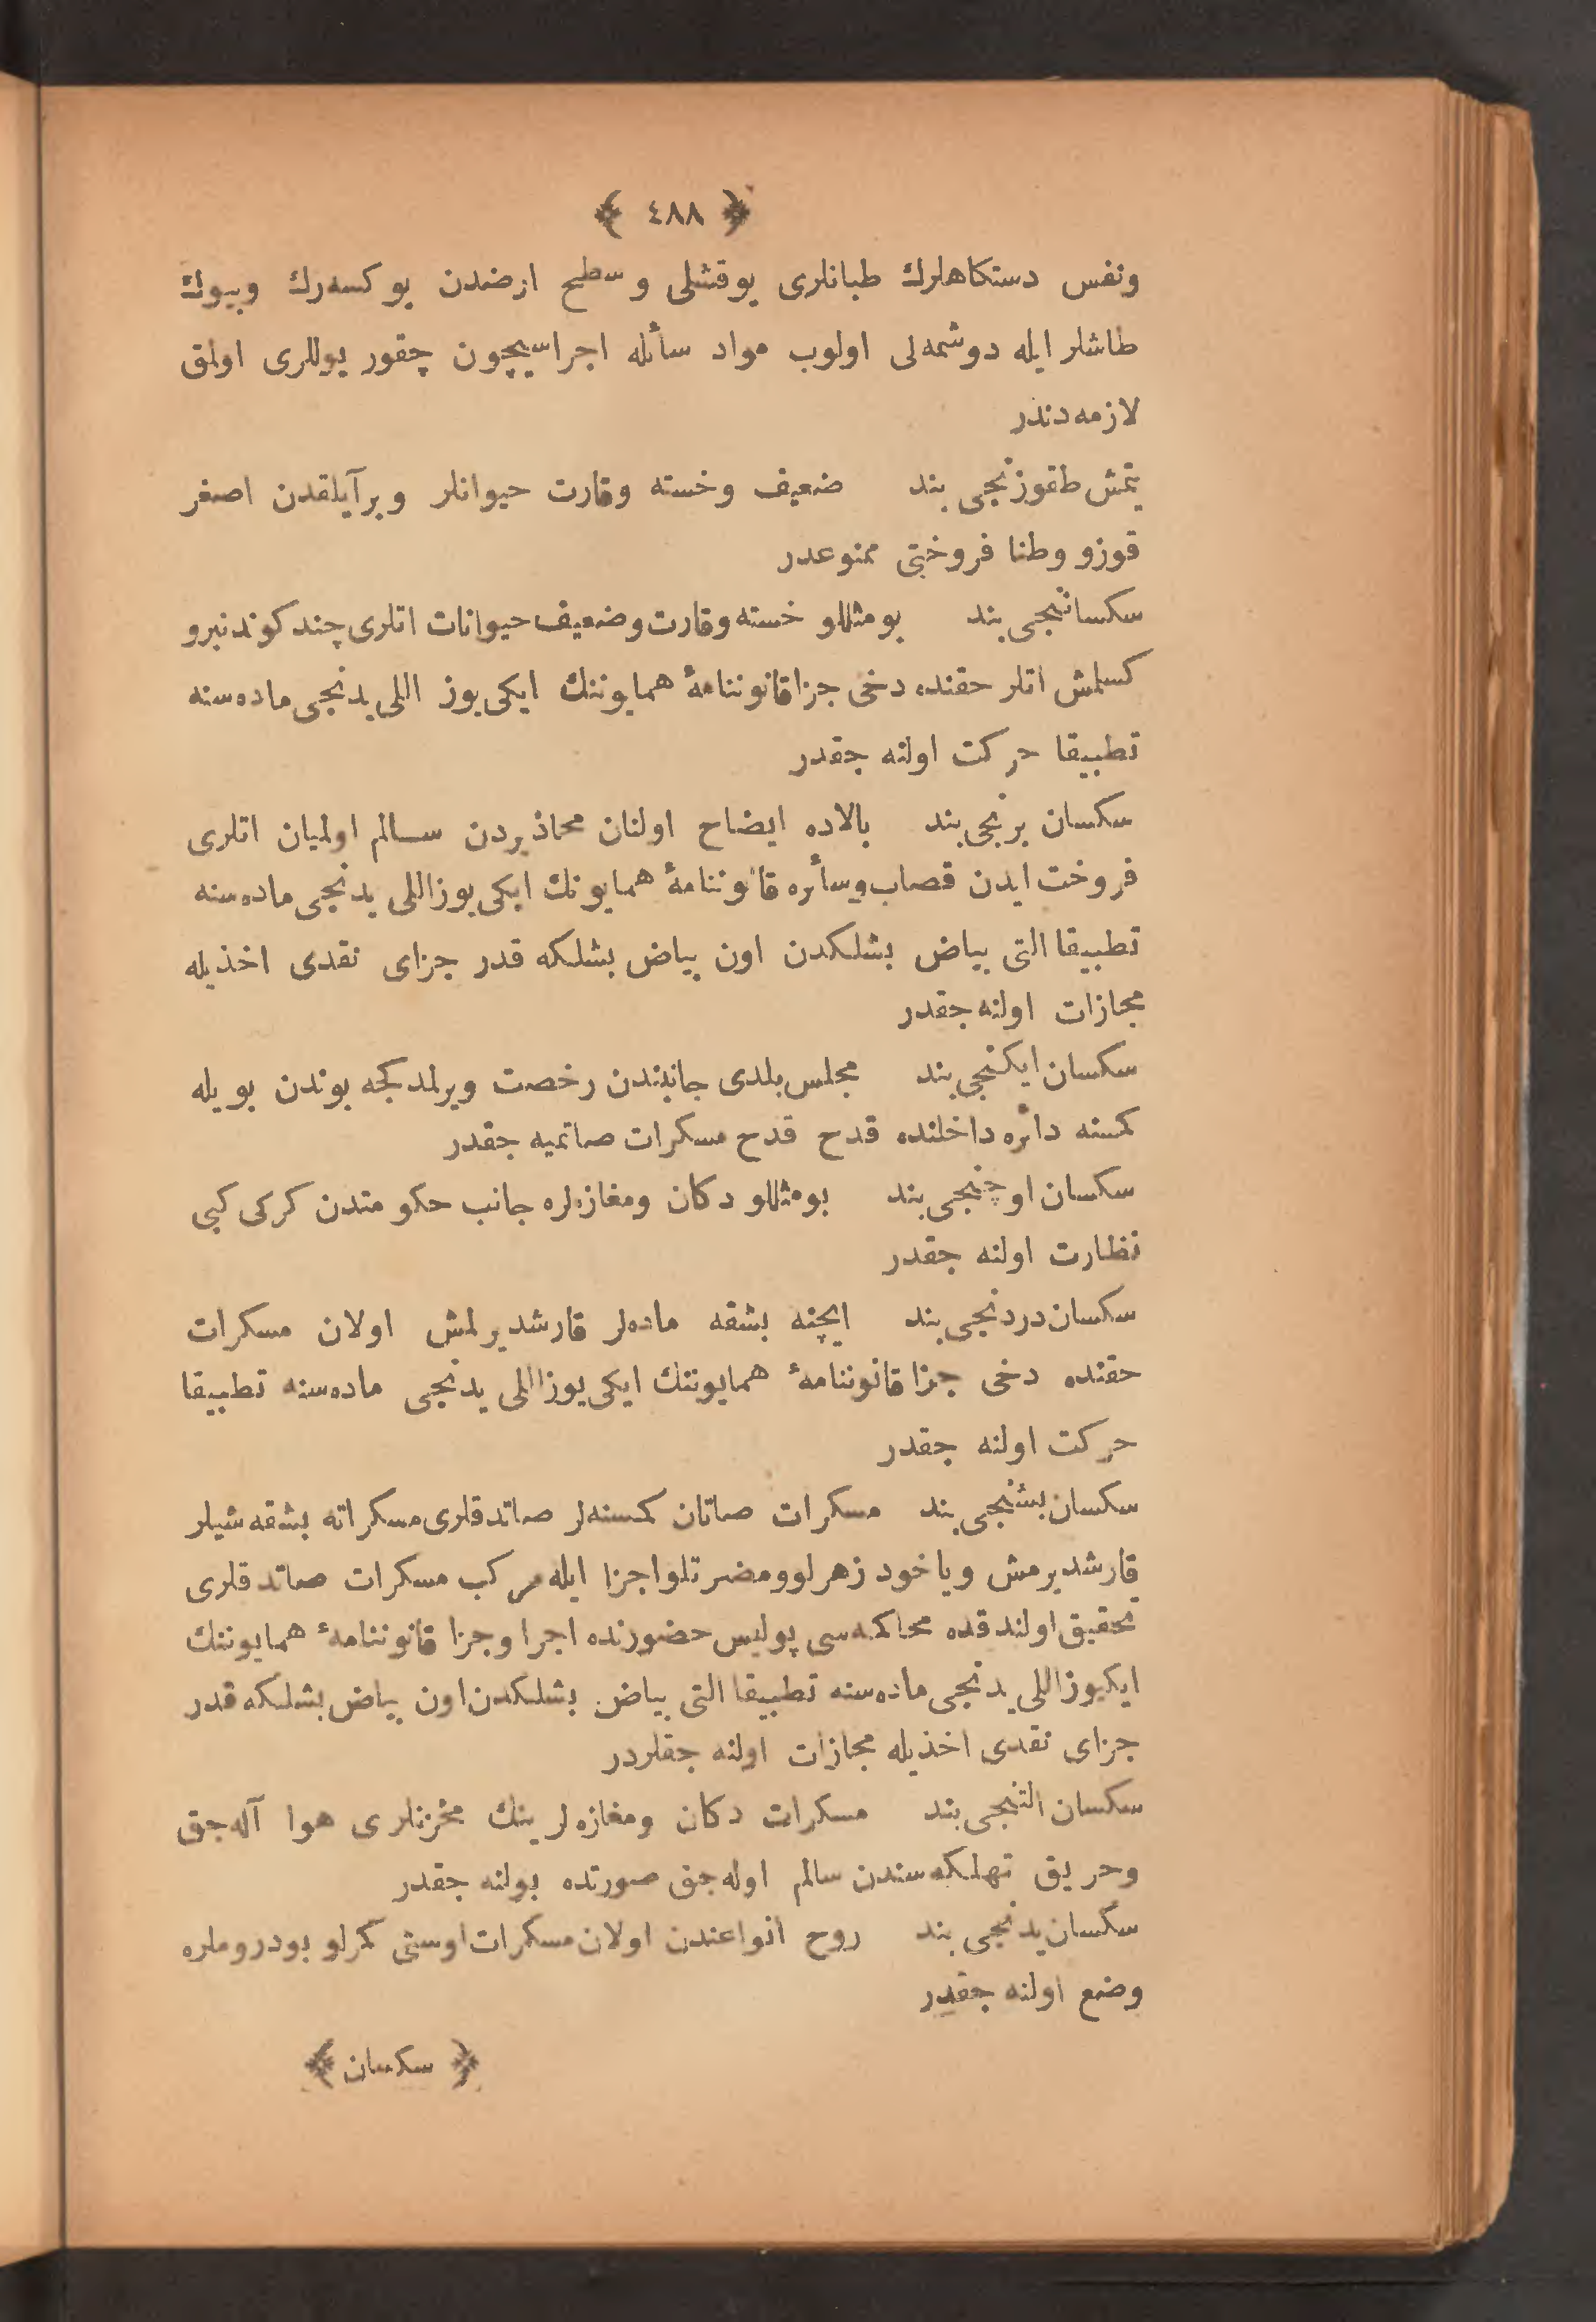 ﴿ ٤٨٨ ﴾
ونفس دستكاهلرك طبانلرى يوقشلى وسطح ارضدن يوكسه‌رك وبيوك
طاشلر ايله دوشمه‌لى اولوب مواد سأئله اجراسيچون چقور يوللرى اولمق
لازمه‌دندر
يتمش طقوزنجى بند ضعيف وخسته وقارت حيوانلر وبرآيلقدن اصغر
قوزو وطنا فروختى ممنوعدر
سكساننجى بند بومثللو خسته وقارت وضعيف حيوانات اتلرى چند كوندنبرو
كسلمش اتلر حقنده دخى جزا قانوننامهٔ همايوننك ايكى يوز اللى يدنجى ماده‌سنه
تطبيقا حركت اولنه جقدر
سكسان برنجى بند بالاده ايضاح اولنان محاذيردن سالم اولميان اتلرى
فروخت ايدن قصاب وسأره قانوننامهٔ همايونك ايكى يوز اللى يدنجى ماده‌سنه
تطبيقا التى بياض بشلكدن اون بياض بشلكه قدر جزاى نقدى اخذيله
مجازات اولنه جقدر
سكسان ايكنجى بند مجلس بلدى جانبندن رخصت ويرلمدكجه بوندن بويله
كمسنه دائره داخلنده قدح قدح مسكرات صاتميه جقدر
سكسان اوچنجى بند بومثللو دكان ومغازه‌لره جانب حكومتدن كركى كبى
نظارت اولنه جقدر
سكسان دردنجى بند ايچنه بشقه ماده‌لر قارشديرلمش اولان مسكرات
حقنده دخى جزا قانوننامهٔ همايوننك ايكى يوز اللى يدنجى ماده‌سنه تطبيقا
حركت اولنه جقدر
سكسان بشنجى بند مسكرات صاتان كمسنه‌لر صاتدقلرى مسكراته بشقه شيلر
قارشديرمش وياخود زهرلو ومضرتلو اجزا ايله مركب مسكرات صاتدقلرى
تحقيق اولندقده محاكمه‌سى پوليس حضورنده اجرا وجزا قانوننامهٔ همايوننك
ايكيوز اللى يدنجى ماده‌سنه تطبيقا التى بياض بشلكدن اون بياض بشلكه قدر
جزاى نقدى اخذيله مجازات اولنه جقلردر
سكسان التنجى بند مسكرات دكان ومغازه‌لرينك مخزنلرى هوا آله‌جق
وحريق تهلكه‌سندن سالم اوله‌جق صورتده بولنه جقدر
سكسان يدنجى بند روح انواعندن اولان مسكرات اوستى كمرلو بودروملره
وضع اولنه جقدر
﴿ سكسان ﴾